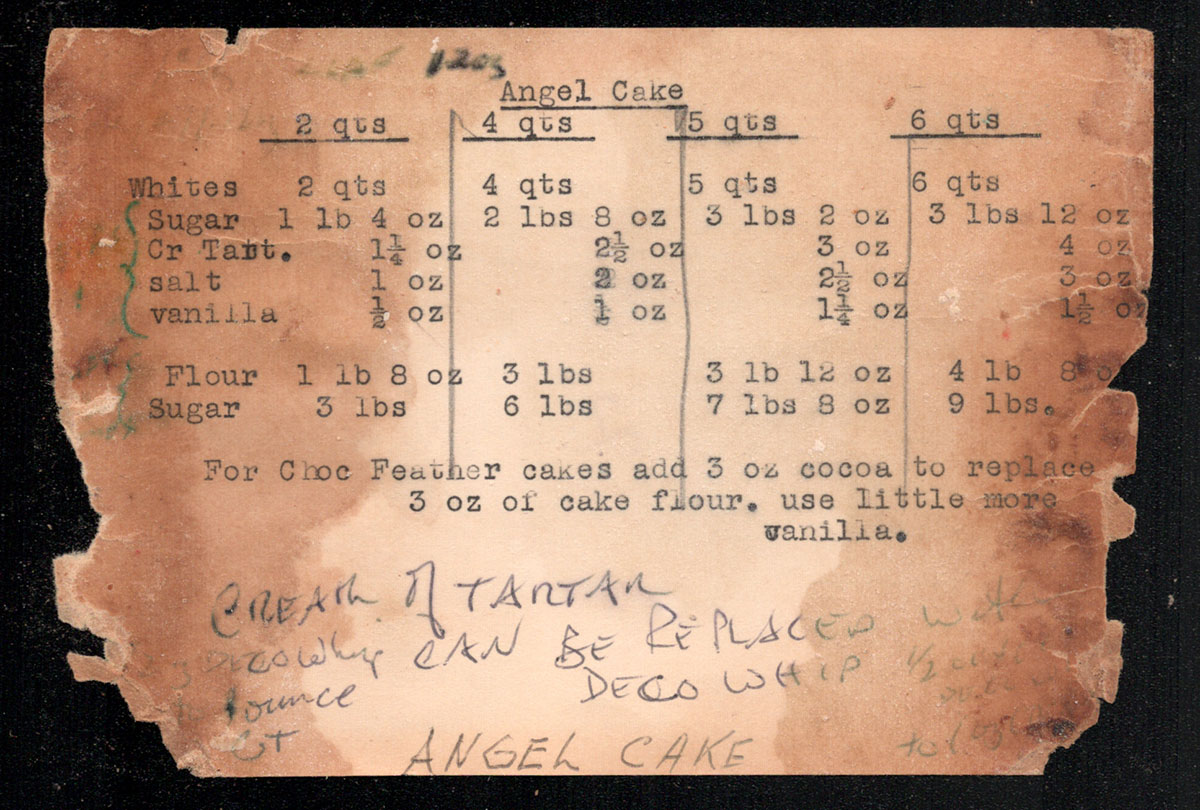 12oz
Angel Cake
2 qts 4 qts 5 qts 6 qts
Whites 2 qts 4 qts 5 qts 6 qts
Sugar 1 lb 4 oz 2 lbs 8 oz 3 lbs 2 oz 3 lbs 12 oz
Cr Tart. 1¼ oz 2½ oz 3 oz 4 oz
salt 1 oz 2 oz 2½ oz 3 oz
vanilla ½ oz 1 oz 1¼ oz 1½ oz
Flour 1 lb 8 oz 3 lbs 3 lb 12 oz 4 lb 8 o
Sugar 3 lbs 6 lbs 7 lbs 8 oz 9 lbs.
For Choc Feather cakes add 3 oz cocoa to replace
3 oz of cake flour. use little more
vanilla.
CREAM of TARTAR
CAN BE REPLACED WITH
DECO WHIP 1/2
DECO Whip
1 ounce
QT
to 1 qt
ANGEL CAKE